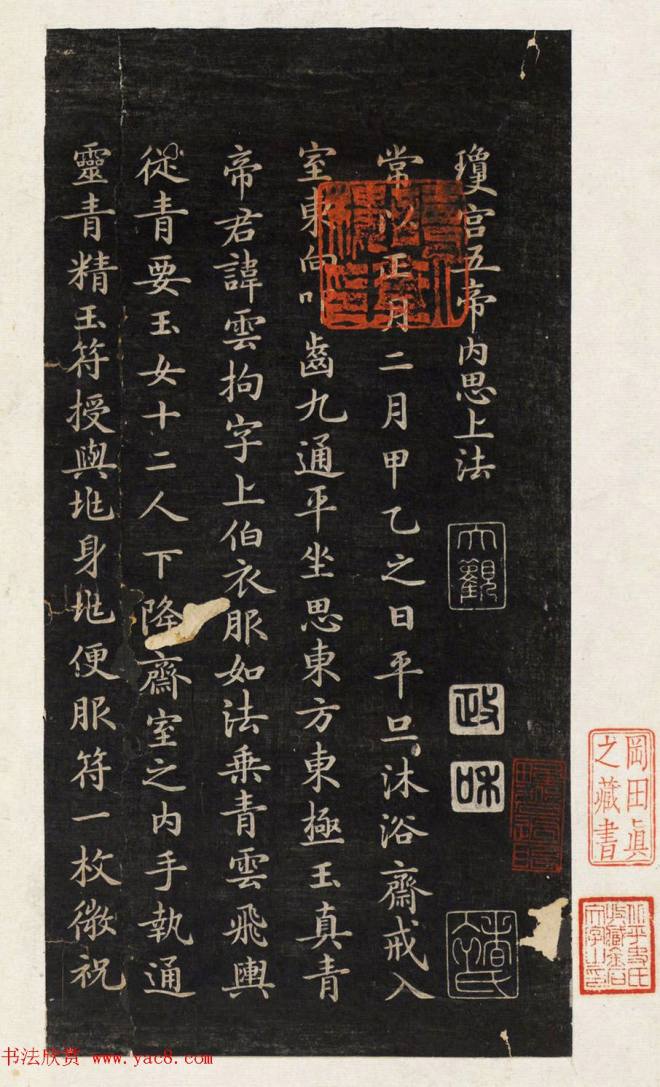 瓊宫五帝内思上法
常以正月二月甲乙之日平旦沐浴齋戒入
室東向叩齒九通平坐思東方東極玉真青
帝君諱雲拘字上伯衣服如法乘青雲飛輿
從青要玉女十二人下降齋室之内手執通
靈青精玉符授與兆身兆便服符一枚微祝
大觀
政
和
岡田眞
之藏書
书法欣赏 www.yac8.com